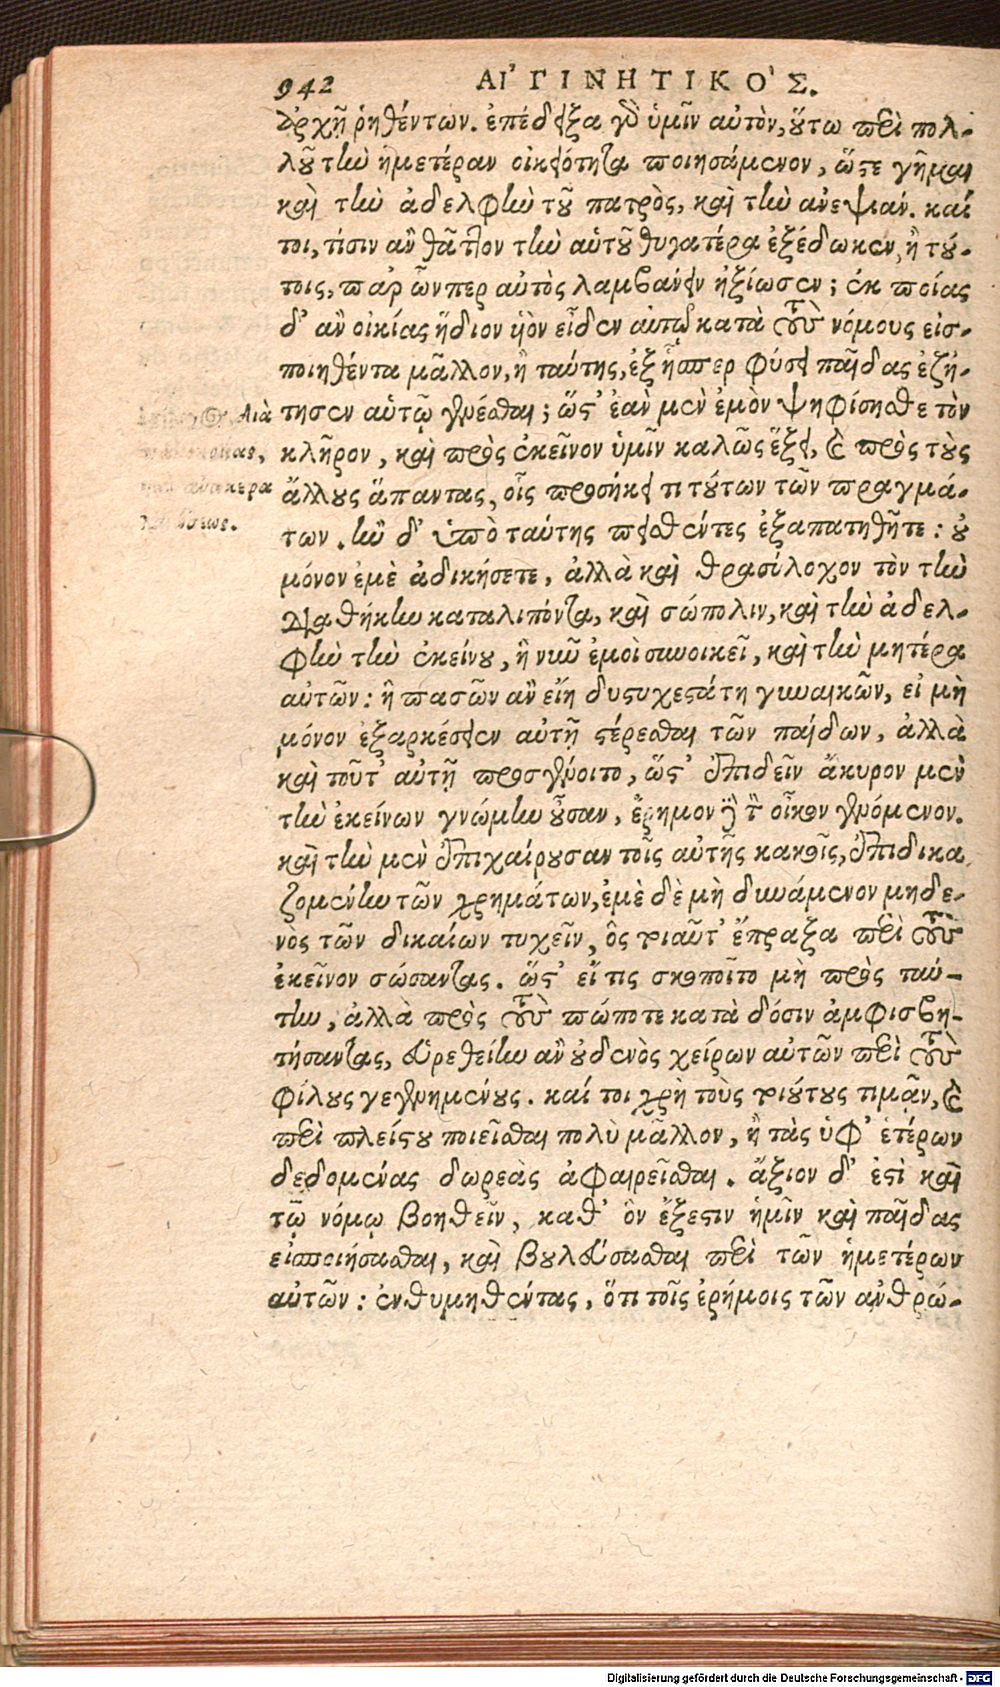 942 ΑΙʼΓΙΝΗΤΙΚΟʹΣ.
ἀρχῇ ῥηθέντων. ἐπέδειξα γὸ ὑμῖν αὐτὸν, οὕτω περὶ πολ-
λοῦ τὴν ἡμετέραν οἰκειότητα ποιησάμενον, ὥστε γῆμαι
καὶ τὴν ἀδελφὴν τοῦ πατρὸς, καὶ τὴν ἀνεψιάν. καί
τοι, τίσιν ἂν θᾶττον τὴν αὑτοῦ θυγατέρα ἐξέδωκεν, ἢ τού-
τοις, παρ' ὧνπερ αὐτὸς λαμβάνειν ἠξίωσεν; ἐκ ποίας
δ' ἂν οἰκίας ἥδιον υἱὸν εἶδεν αὑτῷ κατὰ τοὺς νόμους εἰσ-
ποιηθέντα μᾶλλον, ἢ ταύτης, ἐξ ἧσπερ φύσει παῖδας ἐζή-
τησεν αὑτῷ γενέσθαι; ὥστ' ἐὰν μὲν ἐμὸν ψηφίσησθε τὸν
κλῆρον, καὶ πρὸς ἐκεῖνον ὑμῖν καλῶς ἕξει, καὶ πρὸς τοὺς
ἄλλους ἅπαντας, οἷς προσήκει τι τούτων τῶν πραγμά-
των. ἢν δ' ὑπὸ ταύτης πεισθέντες ἐξαπατηθῆτε: οὐ
μόνον ἐμὲ ἀδικήσετε, ἀλλὰ καὶ θρασύλοχον τὸν τὴν
διαθήκην καταλιπόντα, καὶ σώπολιν, καὶ τὴν ἀδελ-
φὴν τὴν ἐκείνου, ἣ νῦν ἐμοὶ συνοικεῖ, καὶ τὴν μητέρα
αὐτῶν: ἣ πασῶν ἂν εἴη δυστυχεστάτη γυναικῶν, εἰ μὴ
μόνον ἐξαρκέσειεν αὐτῇ στέρεσθαι τῶν παίδων, ἀλλὰ
καὶ τοῦτ' αὐτῇ προσγένοιτο, ὥστ' ἐπιδεῖν ἄκυρον μὲν
τὴν ἐκείνων γνώμην οὖσαν, ἔρημον δὲ τὸν οἶκον γενόμενον.
καὶ τὴν μὲν ἐπιχαίρουσαν τοῖς αὐτῆς κακοῖς, ἐπιδικα
ζομένην τῶν χρημάτων, ἐμὲ δὲ μὴ δυνάμενον μηδε-
νὸς τῶν δικαίων τυχεῖν, ὃς τοιαῦτ' ἔπραξα περὶ τοὺς
ἐκεῖνον σώσαντας. ὥστ' εἴ τις σκοποῖτο μὴ πρὸς ταύ-
την, ἀλλὰ πρὸς τοὺς πώποτε κατὰ δόσιν ἀμφισβη-
τήσαντας, εὑρεθείην ἂν οὐδενὸς χείρων αὐτῶν περὶ τοὺς
φίλους γεγενημένους. καί τοι χρὴ τοὺς τοιούτους τιμᾷν, καὶ
περὶ πλείστου ποιεῖσθαι πολὺ μᾶλλον, ἢ τὰς ὑφ' ἑτέρων
δεδομένας δωρεὰς ἀφαιρεῖσθαι. ἄξιον δ' ἐστὶ καὶ
τῷ νόμῳ βοηθεῖν, καθ' ὃν ἔξεστιν ἡμῖν καὶ παῖδας
εἰσποιήσασθαι, καὶ βουλεύσασθαι περὶ τῶν ἡμετέρων
αὐτῶν: ἐνθυμηθέντας, ὅτι τοῖς ἐρήμοις τῶν ἀνθρώ-
Digitalisierung gefördert durch die Deutsche Forschungsgemeinschaft - DFG